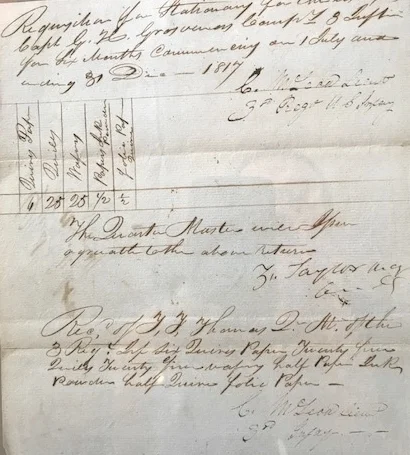 Requisition for Stationary for the
Capt. G. H. Grosvenors Comp'y 3 Inft
for Six Months Commencing on 1 July and
ending 31 Dece — 1817
C. McLeod Lieut
3d Regt U S Infan
Quires Paper
Quills
Wafers
Papers Ink Powder
Folio Pap Quires
6 25 25 1/2 1/2
The Quarter Master will Issue
agreeable to the above return
Z. Taylor Maj
Com
Recd of J. J. Thomas Qr. Mr. of the
3 Regt. Inf Six Quires Paper Twenty five
Quills Twenty five wafers half Paper Ink
Powder half Quire folio Paper —
C. McLeod Lieut
3d Infty